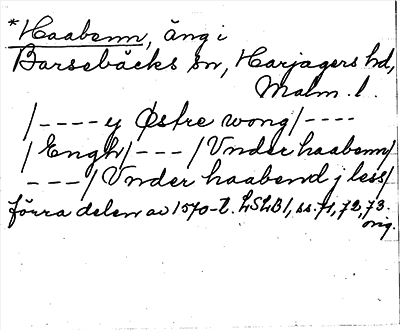 *Haabenn, äng i
Barsebäcks sn, Harjagers hd,
Malm. l.
/---- y Østre wong/----
/Engh/---/Vnder haabenn/
---/Vnder haabend j less/
förra delen av 1570-t. LSLB1, ss. 71, 72, 73.
orig.